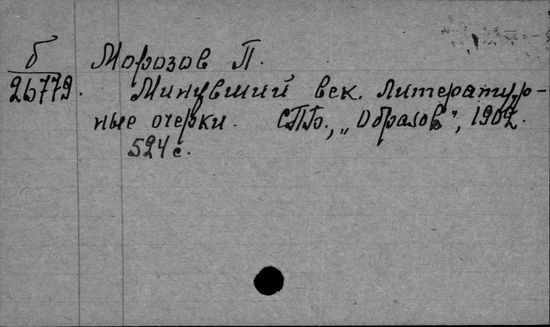 б Морозов П.
26779. Минувший век. Литератур-
ные очерки. СПб., „Образов", 1902.
524 с.